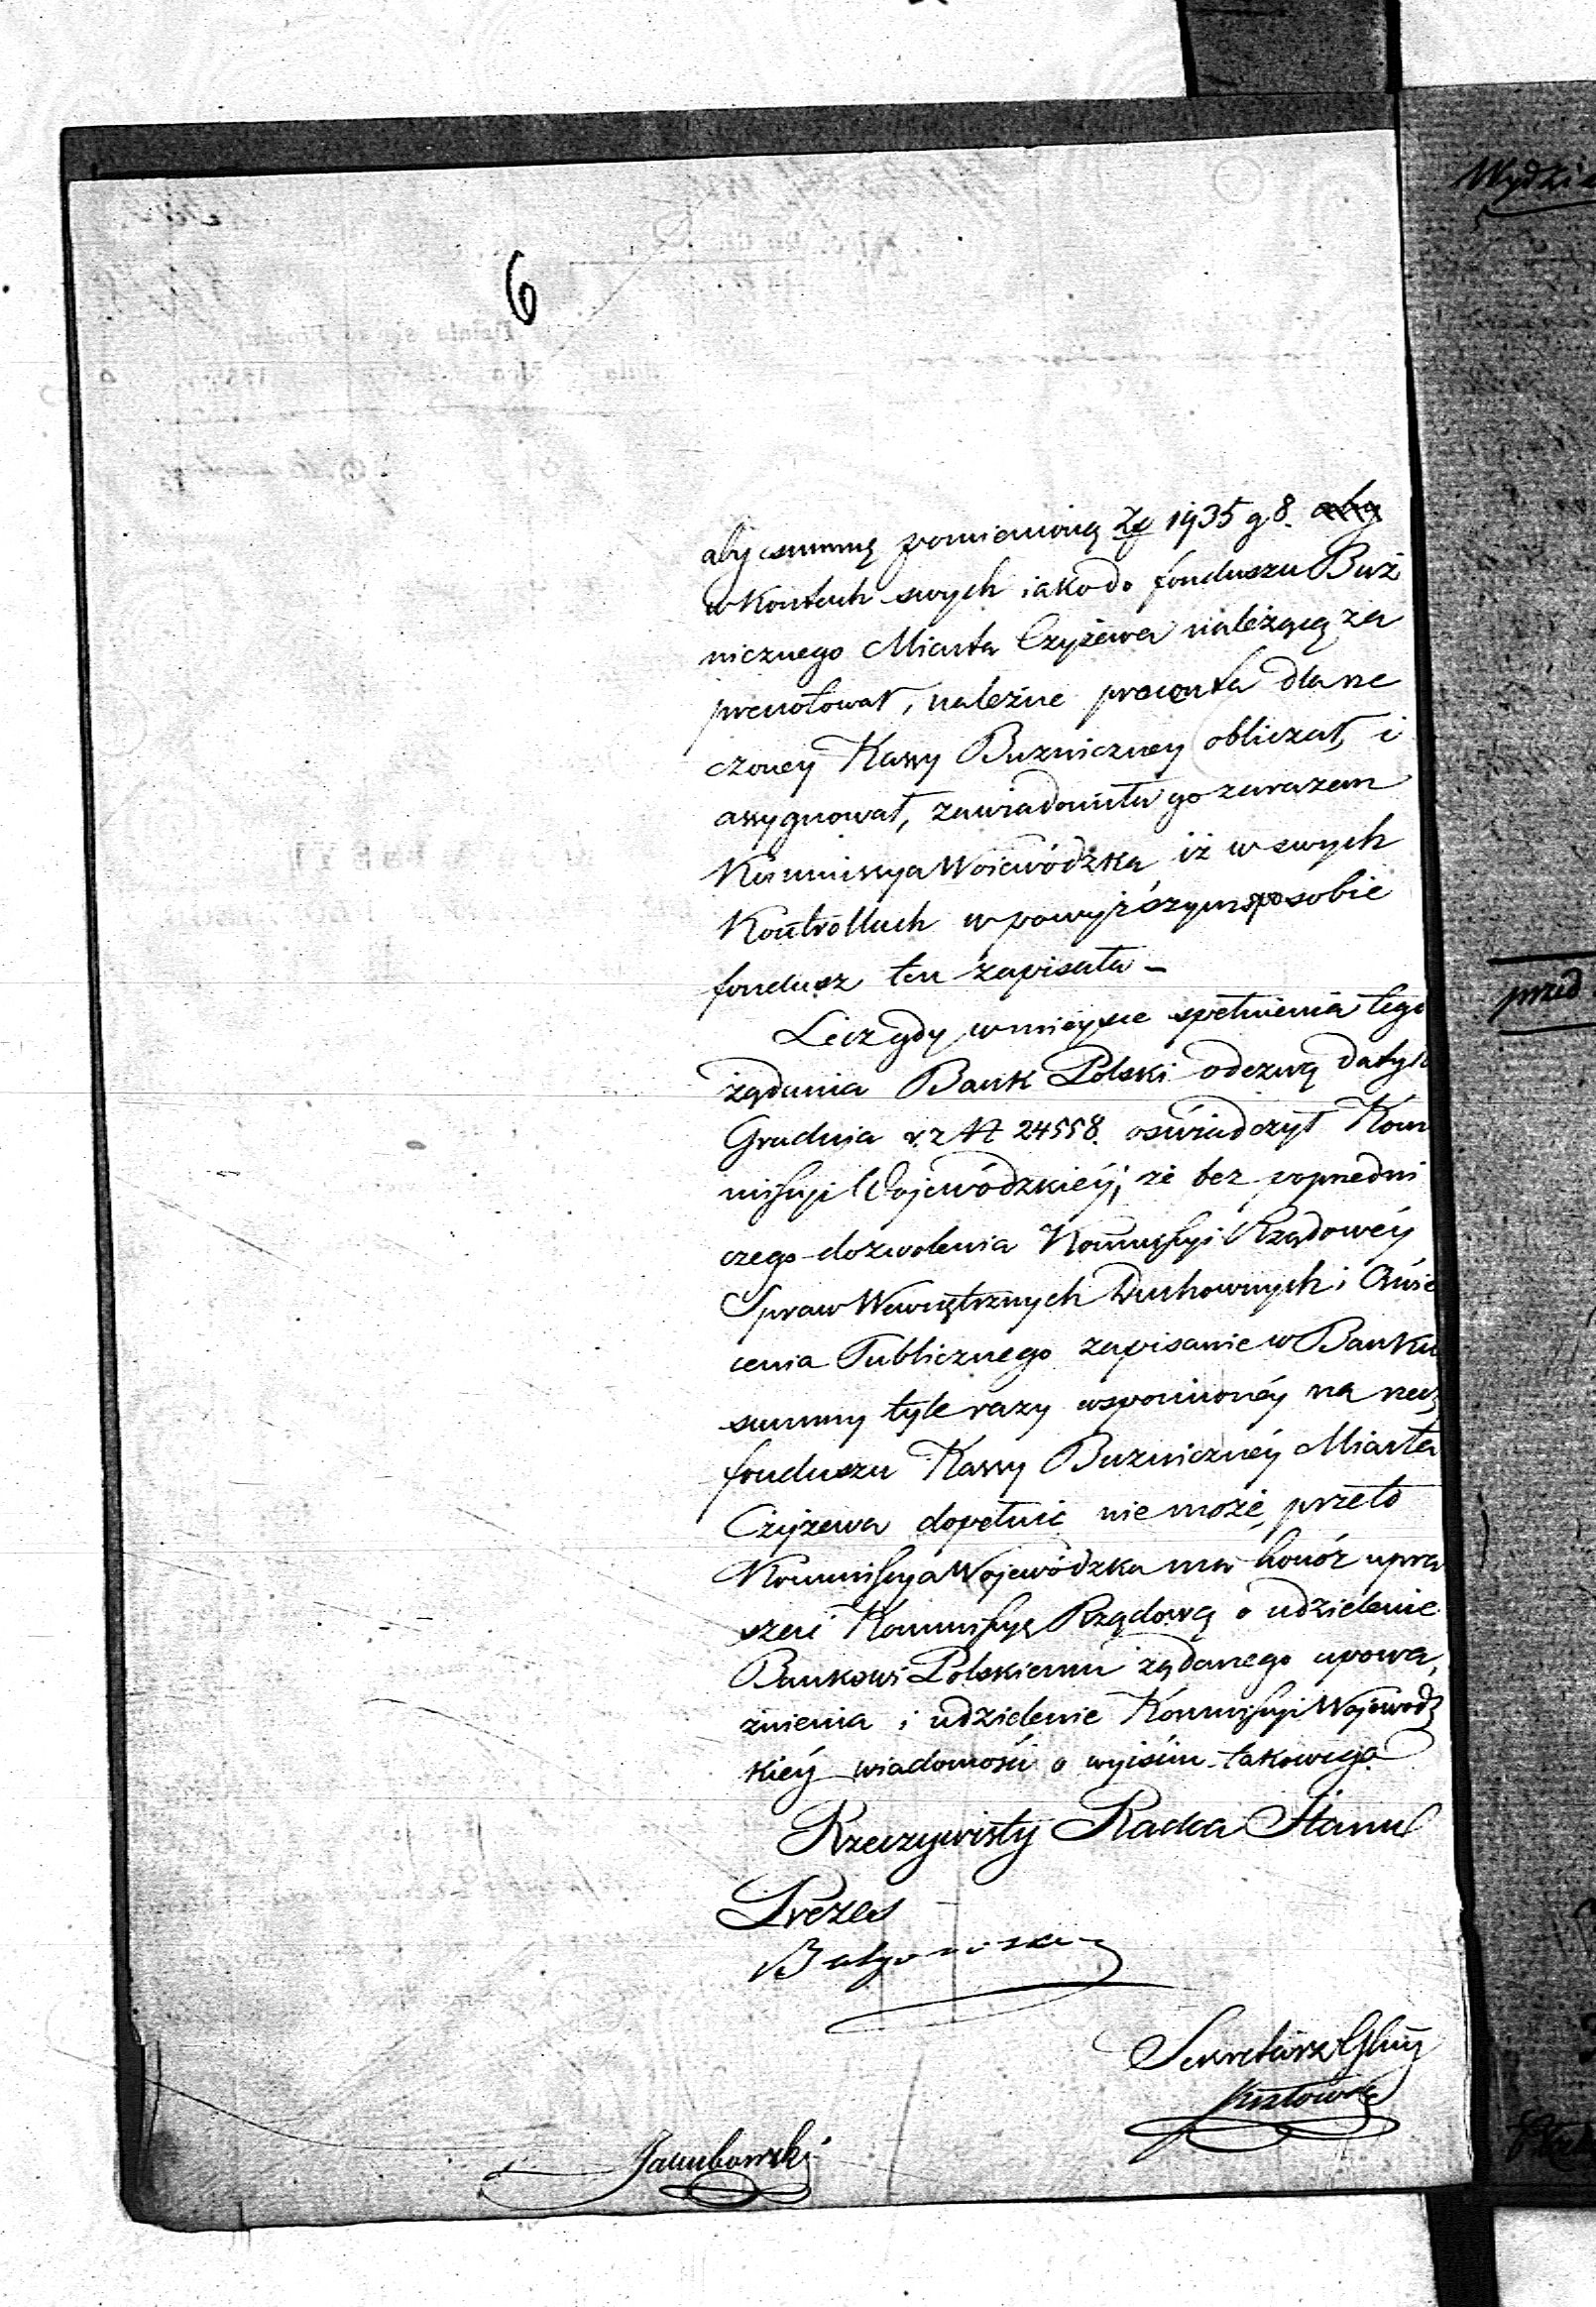 6
aby summę pomienioną Zł 1935 g 8. aby
w Kontach swych iako do funduszu Buż
nicznego Miasta Czyżewa należącą za
prenotował, należne procenta dla rze
czoney Kassy Bużniczney obliczał, i
assygnował, zawiadomiła go zarazem
Kommissya Woiewódzka iż w swych
Kontrollach w powyższym sposobie
fundusz ten zapisała _
Lecz gdy w mieysce spełnienia tego
żądania Bank Polski odezwą daty
Grudnia r. z N 24558. oświadczył Kom
missyi Wojewódzkiéy, że bez poprzedni
czego dozwolenia Kommissyi Rządowéy
Spraw Wewnętrznych Duchownych i Oświe
cenia Publicznego zapisanie w Banku
summy tyle razy wspomnionéy na rzecz
funduszu Kassy Buznicznéy Miasta
Czyżewa dopełnić nie może, przeto
Kommissya Wojewódzka ma honór upra
szać Kommissyę Rządową o udzielenie
Bankowi Polskiemu żądanego upowa,
żnienia i udzielenie Kommissyi Wojewodz
kiéy wiadomości o wyiściu takowego
Rzeczywisty Radca Stanu
Prezes
Sekretarz Glny
Kozłowski
Jakubowski
Wydzia
przed